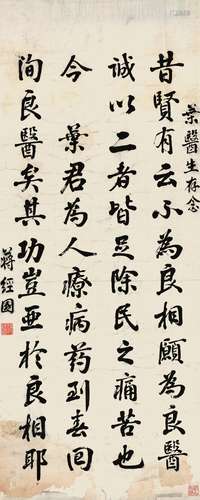 葉醫生存念
昔賢有云不為良相願為良醫
誠以二者皆足除民之痛苦也
今葉君為人療病药到春回
洵良醫矣其功豈亚於良相耶
蔣經國